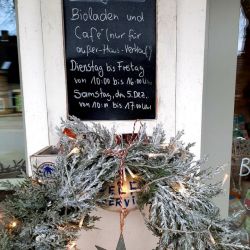 Bioladen und
Café (nur für
außer-Haus-Verkauf)
Dienstag bis Freitag
von 10:00 bis 16:00 Uhr
Samstag, den 5. Dez.
von 10:00 bis 17:00 Uhr
SERVICE
B